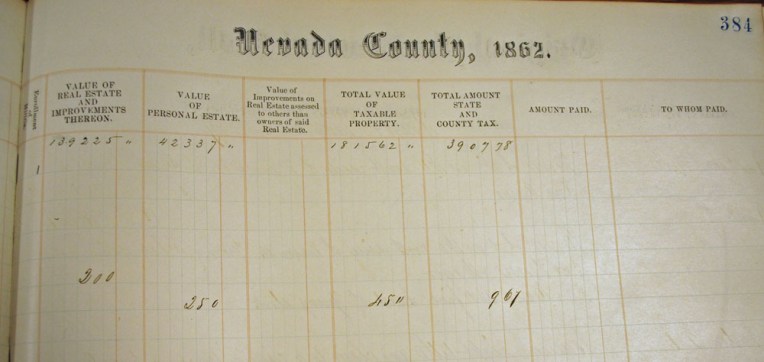 384
Nevada County, 1862.
Enrollment
VALUE OF REAL ESTATE AND IMPROVEMENTS THEREON.
VALUE OF PERSONAL ESTATE.
Value of Improvements on Real Estate assessed to others than owners of said Real Estate.
TOTAL VALUE OF TAXABLE PROPERTY.
TOTAL AMOUNT STATE AND COUNTY TAX.
AMOUNT PAID.
TO WHOM PAID.
139225 " 42337 " 181562 " 3907 78
200
250 450 967